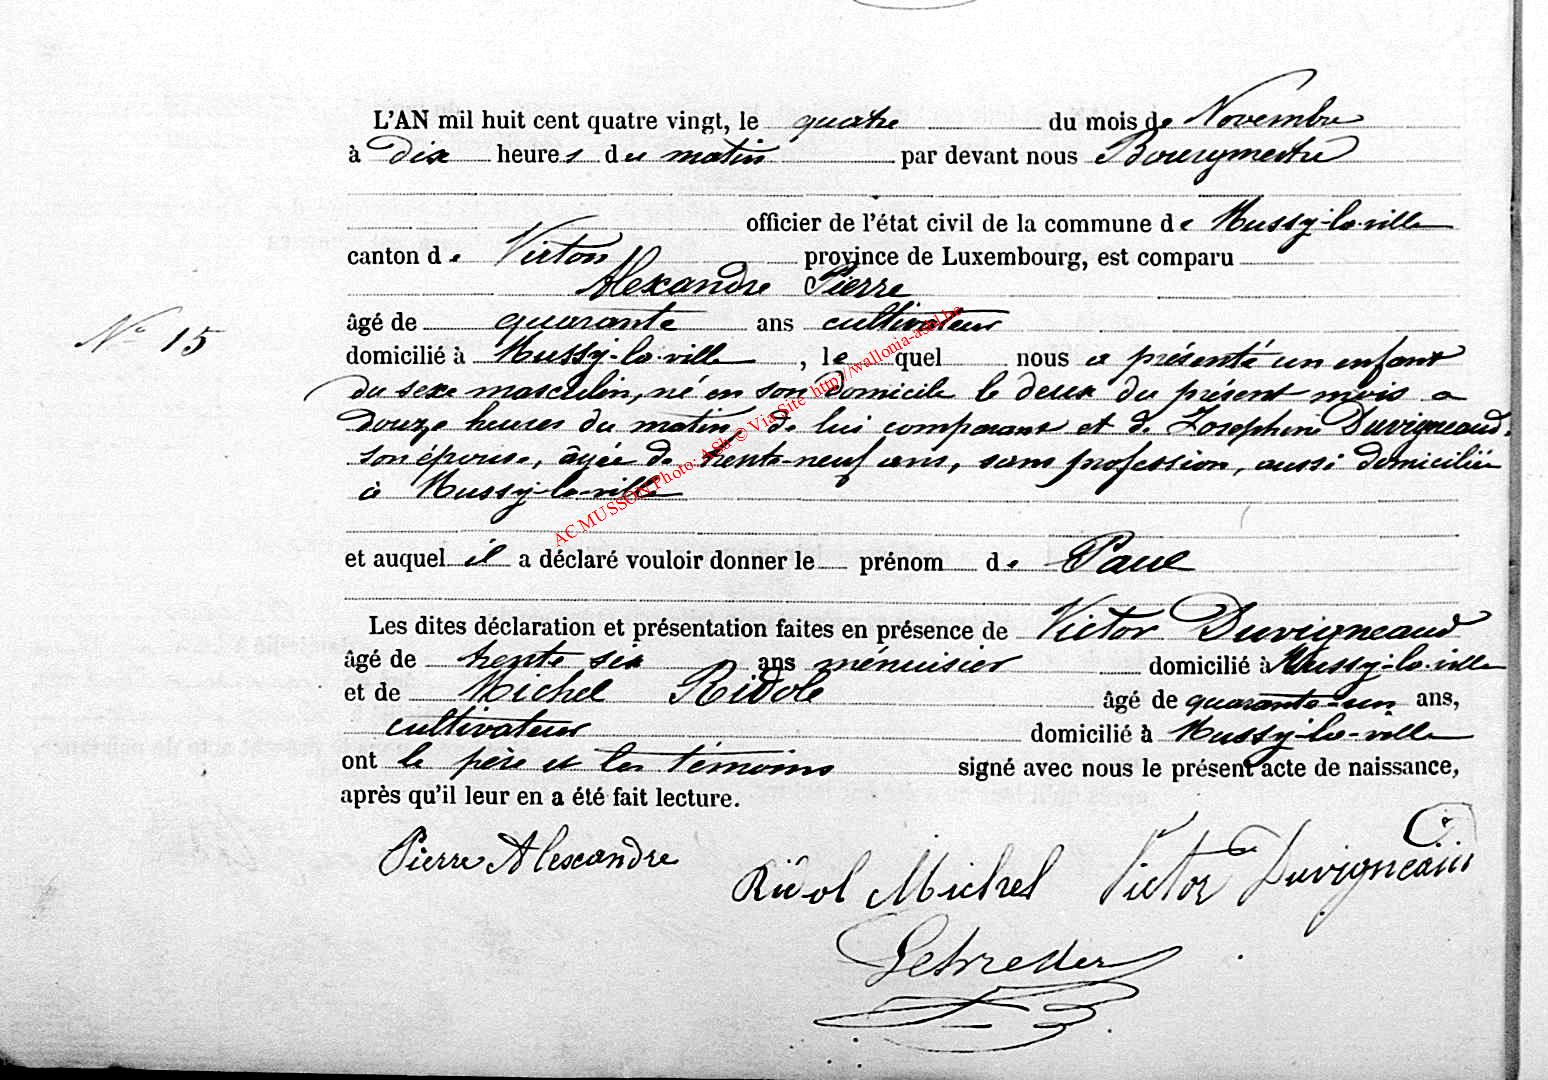 L'AN mil huit cent quatre vingt, le quatre du mois de Novembre
à dix heures du matin par devant nous Bourgmestre
officier de l'état civil de la commune de Mussy-la-ville
canton de Virton province de Luxembourg, est comparu
Alexandre Pierre
âgé de quarante ans cultivateur
N° 15
domicilié à Mussy-la-ville, lequel nous a présenté un enfant
du sexe masculin, né en son domicile le deux du présent mois a
douze heures du matin de lui comparant et de Josephine Duvigneaud,
son épouse, âgée de trente-neuf ans, sans profession, aussi domiciliée
à Mussy-la-ville
AC MUSSON Photo: ASb © Via Site http://wallonia-asbl.be
et auquel il a déclaré vouloir donner le prénom de Paul
Les dites déclaration et présentation faites en présence de Victor Duvigneaud
âgé de trente six ans ménuisier domicilié à Mussy-la-ville
et de Michel Ridole âgé de quarante-un ans,
cultivateur domicilié à Mussy-la-ville
ont le père et les témoins signé avec nous le présent acte de naissance,
après qu'il leur en a été fait lecture.
Pierre Alexandre
Ridol Michel Victor Duvigneaud